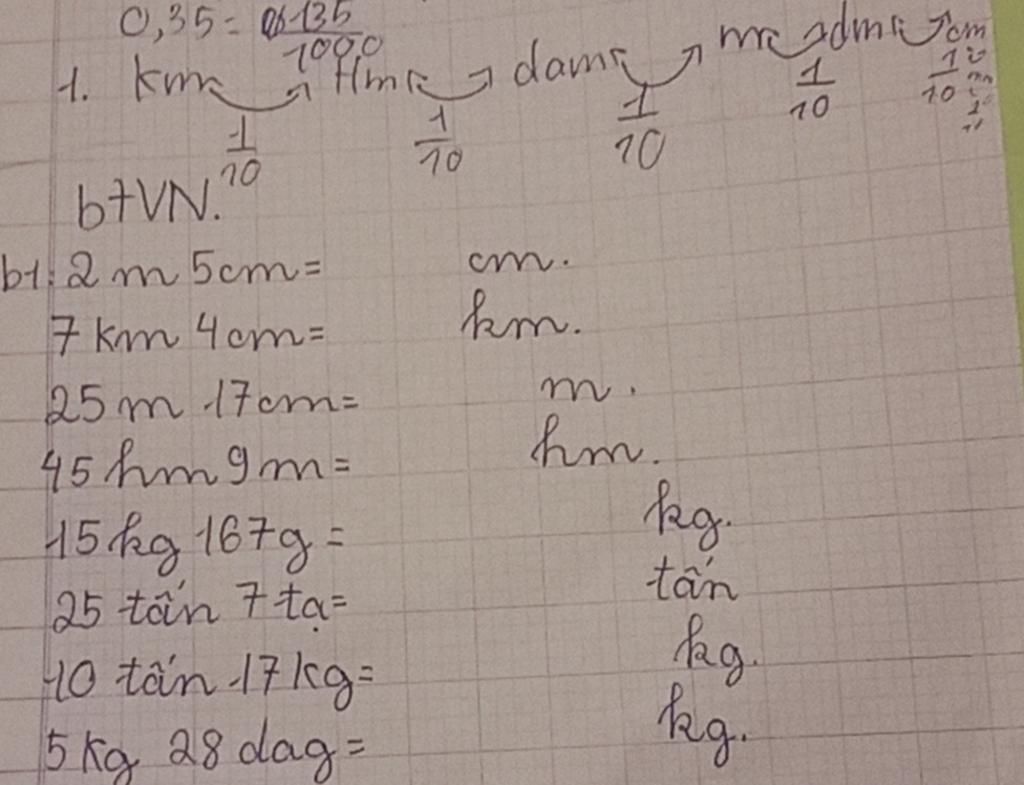 0,35 = 135
1000
1. km Hm dam m dm cm
1/10 1/10 1/10 1/10 1/10
btVN.
b1: 2 m 5cm = cm.
7 km 4cm = km.
25 m 17cm = m.
45 hm 9m = hm.
15 kg 167g = kg.
25 tấn 7 tạ = tấn
10 tấn 17 kg = kg.
5 kg 28 dag = kg.